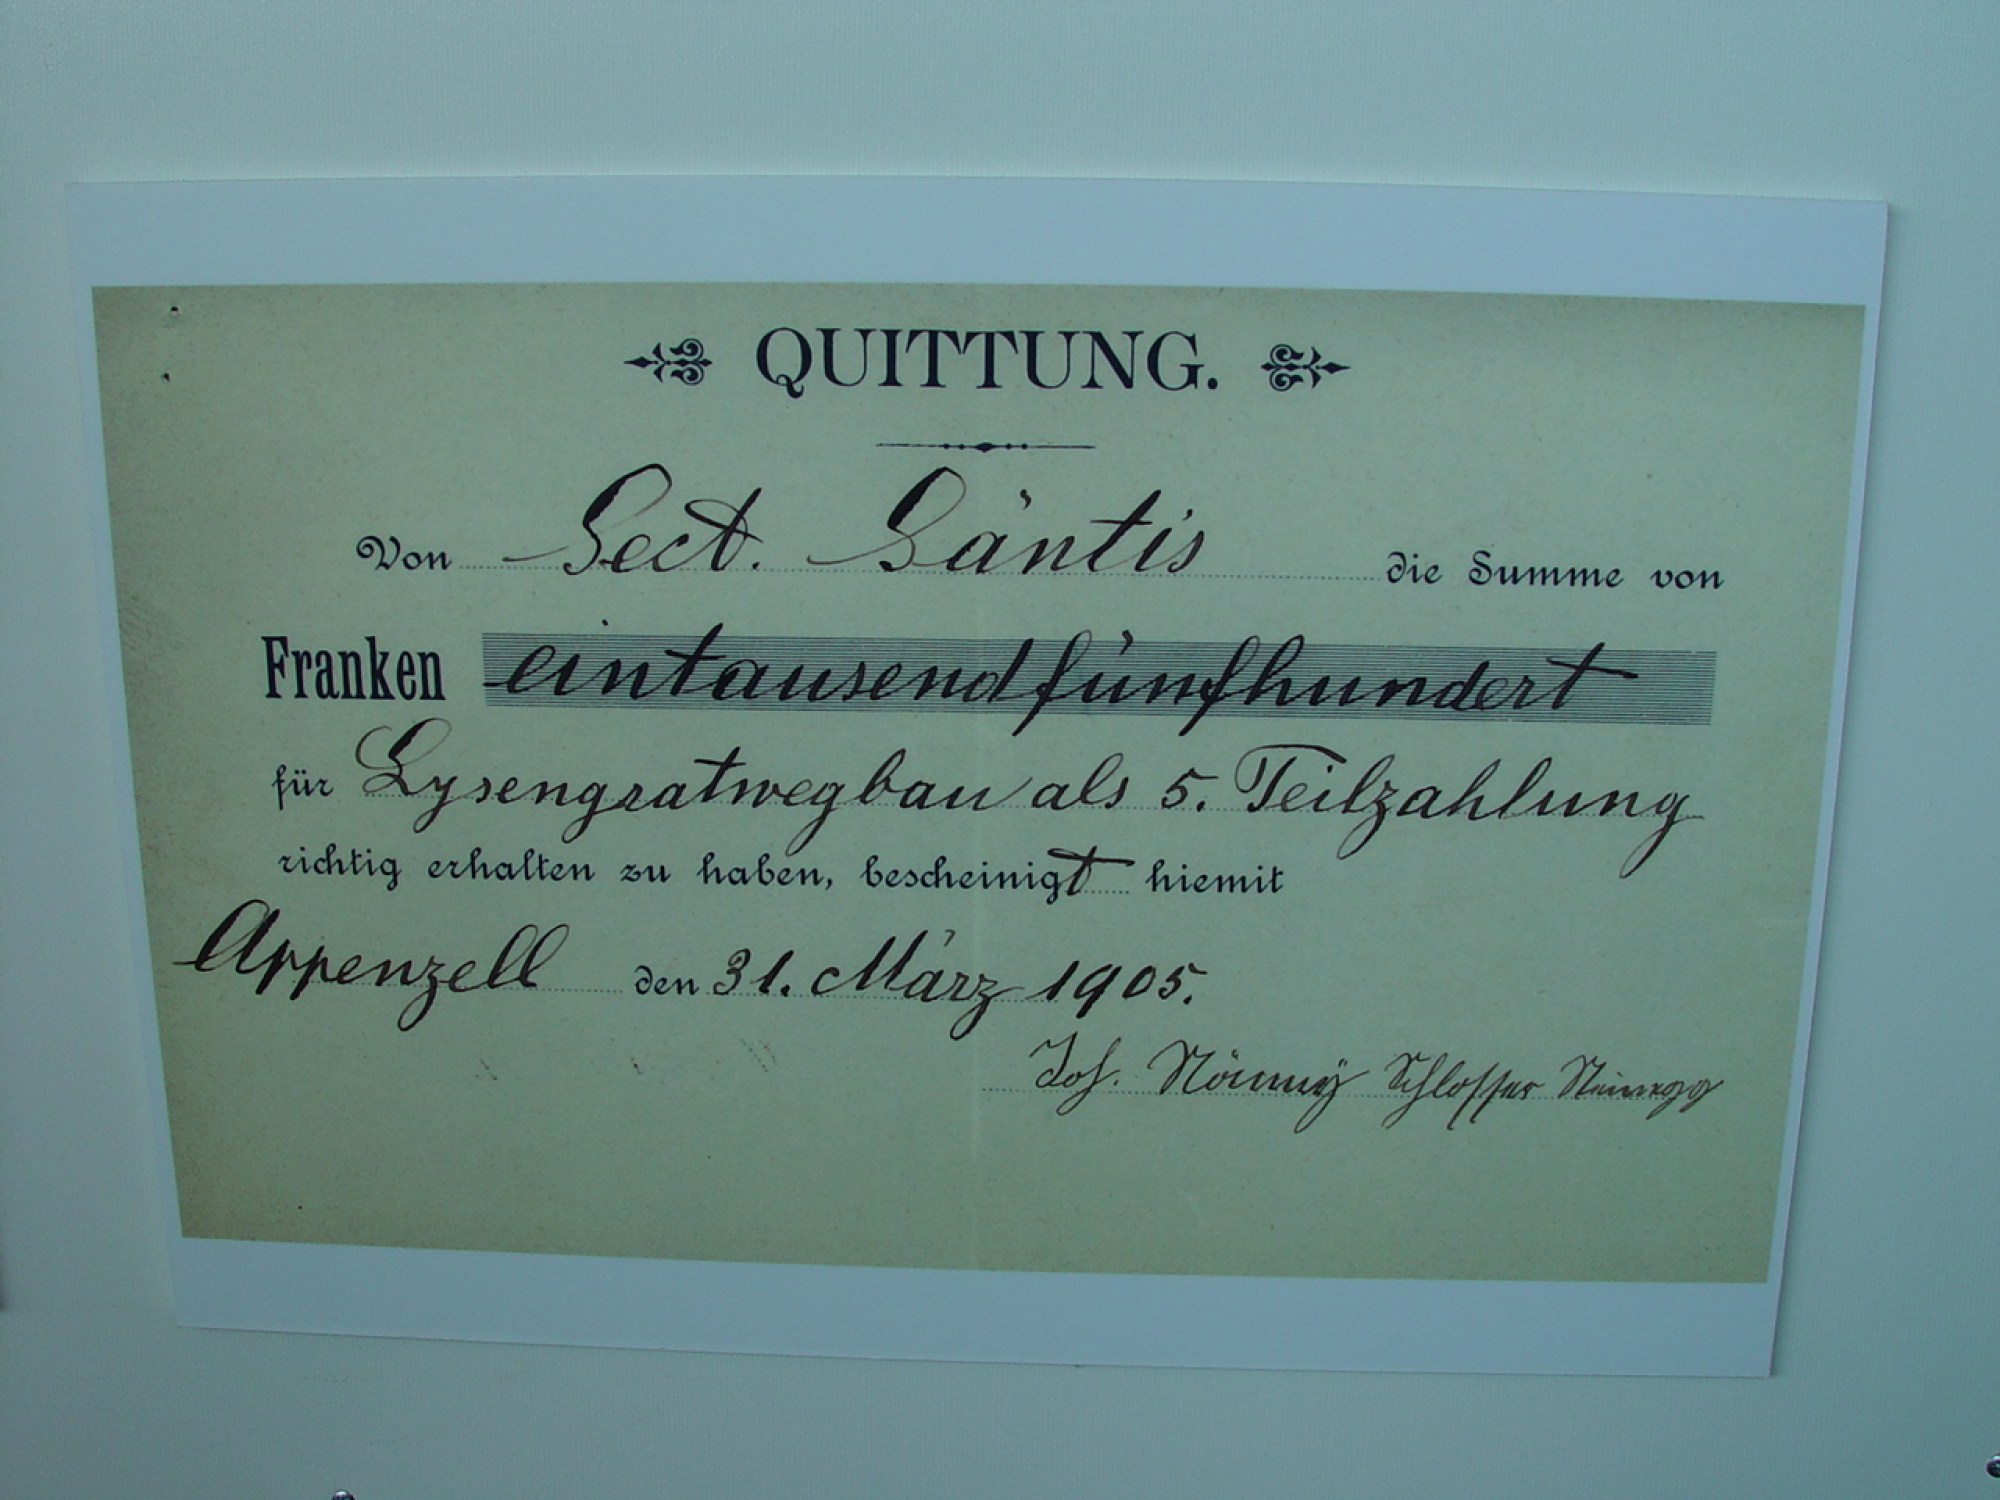 QUITTUNG.
Von Sect. Säntis die Summe von
Franken eintausendfünfhundert
für Lysengratwegbau als 5. Teilzahlung
richtig erhalten zu haben, bescheinigt hiemit
Appenzell den 31. März 1905.
Joh. Schlosser